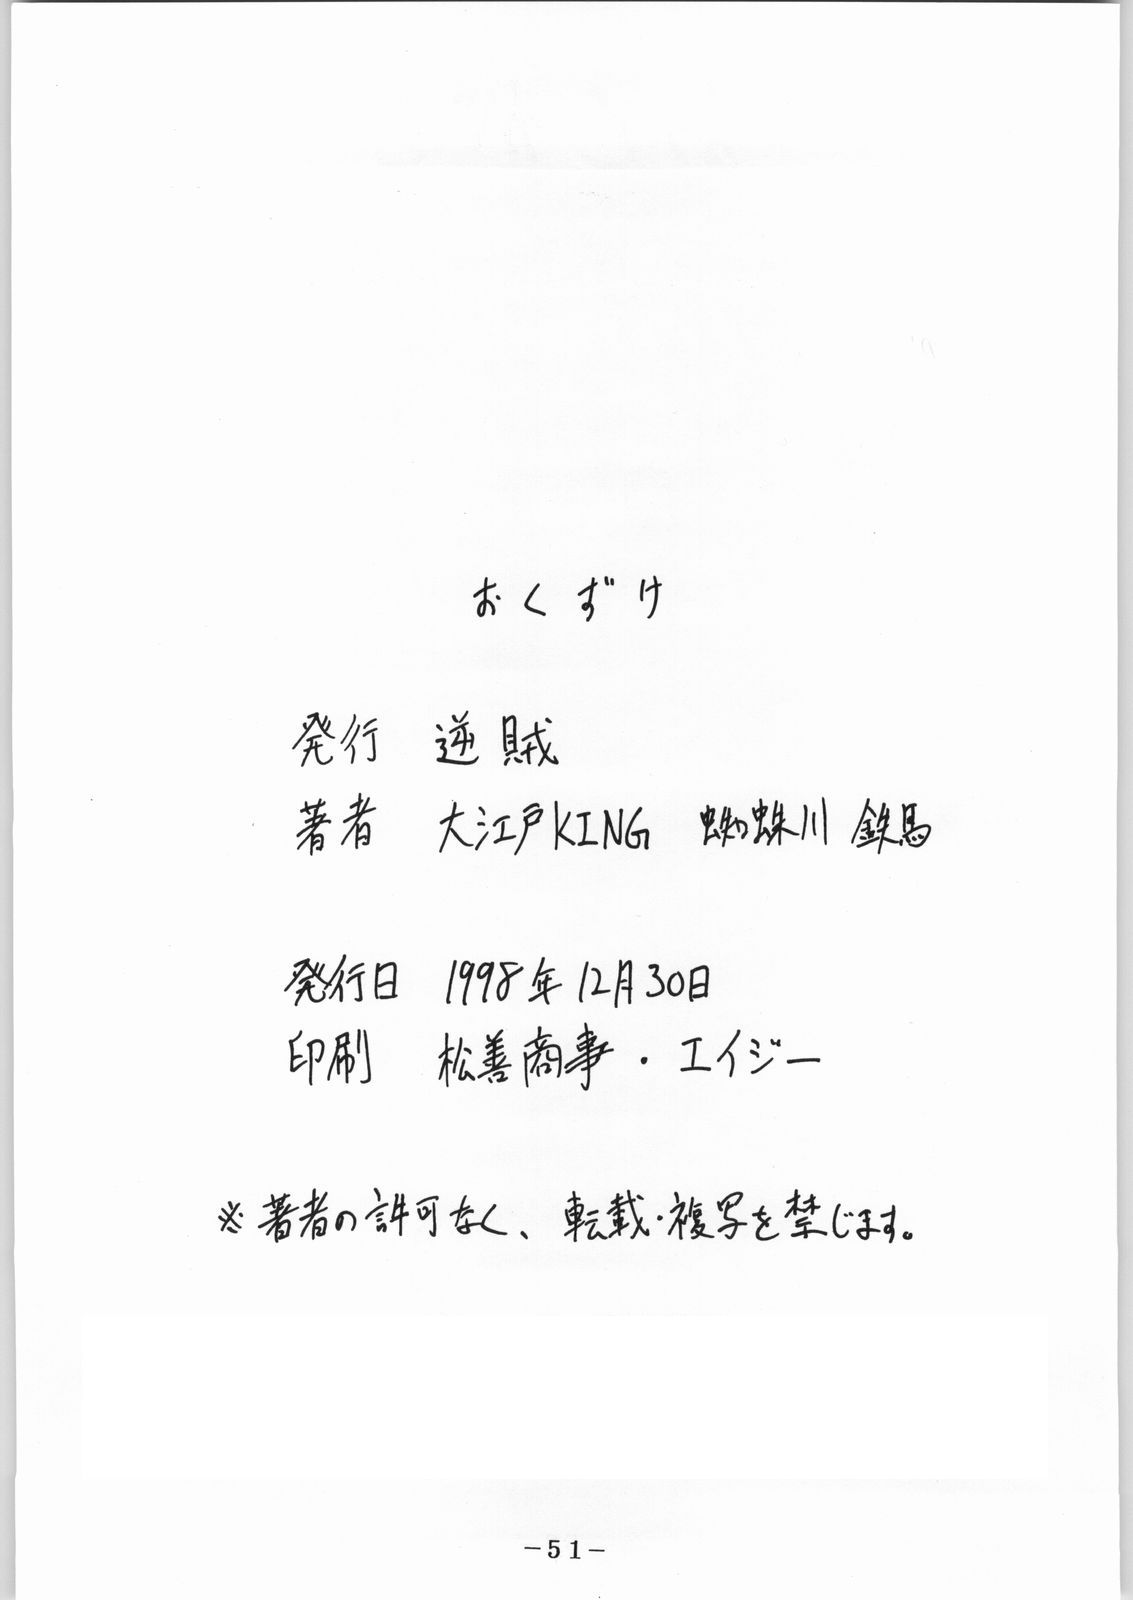 おくずけ
発行 逆賊
著者 大江戸KING 蜘蛛川 鉄馬
発行日 1998年12月30日
印刷 松善商事・エイジー
※著者の許可なく、転載・複写を禁じます。
-51-